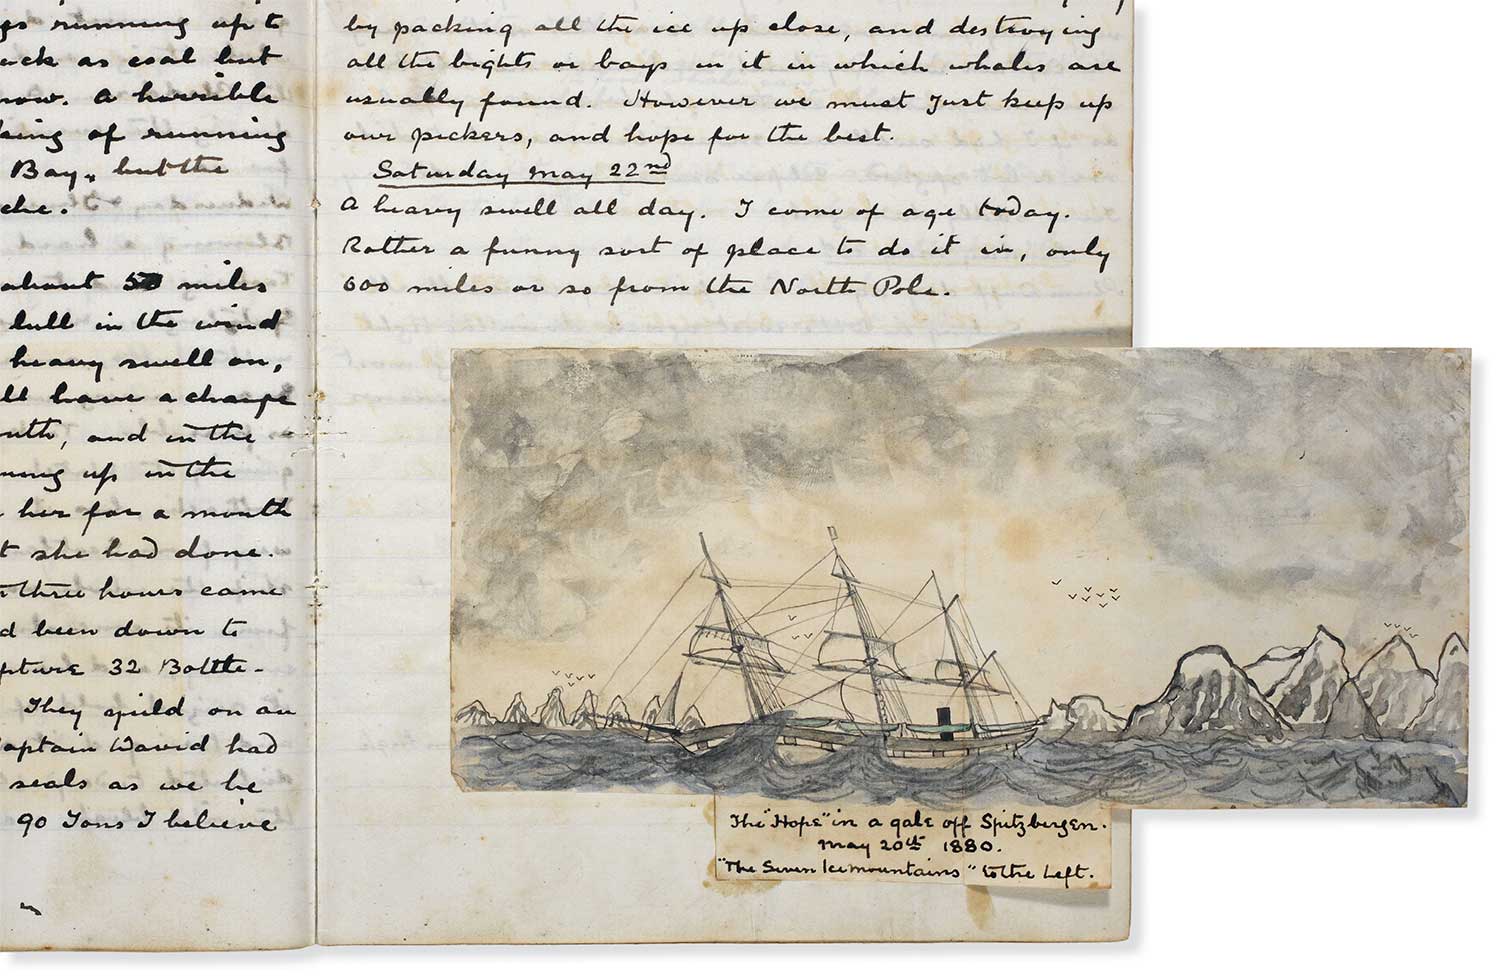 running up to
as coal but
now. A horrible
king of running
Bay, but the
che.
about 50 miles
lull in the wind
heavy swell on,
ll have a change
uth, and in the
ning up in the
her for a month
t she had done.
three hours came
d been down to
pture 32 Bottle-
They spied on an
Captain David had
seals as we he
90 Tons I believe
by packing all the ice up close, and destroying
all the bights or bays in it in which whales are
usually found. However we must just keep up
our peckers, and hope for the best.
Saturday May 22nd
A heavy swell all day. I come of age today.
Rather a funny sort of place to do it in, only
600 miles or so from the North Pole.
The "Hope" in a gale off Spitzbergen.
May 20th 1880.
"The Seven Icemountains" to the Left.